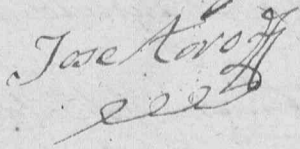 Jose Toro